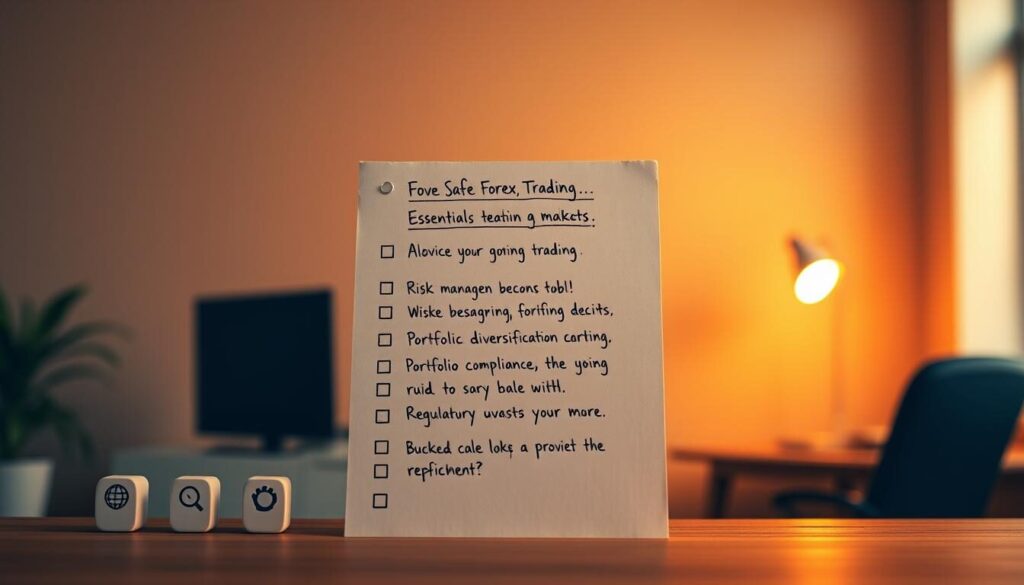 Fove Safe Forex, Trading...
Essentials teatin g makcts.
Alovice your going trading.
Risk managen becons tobl!
Wiske besagring, forifing decits,
Portfolic diversification carting,
Portfolio compliance, the yoing
ruid to sary bale witH.
Regulatury uvasts your more.
Bucked cale loks a proviet the
repfichent?